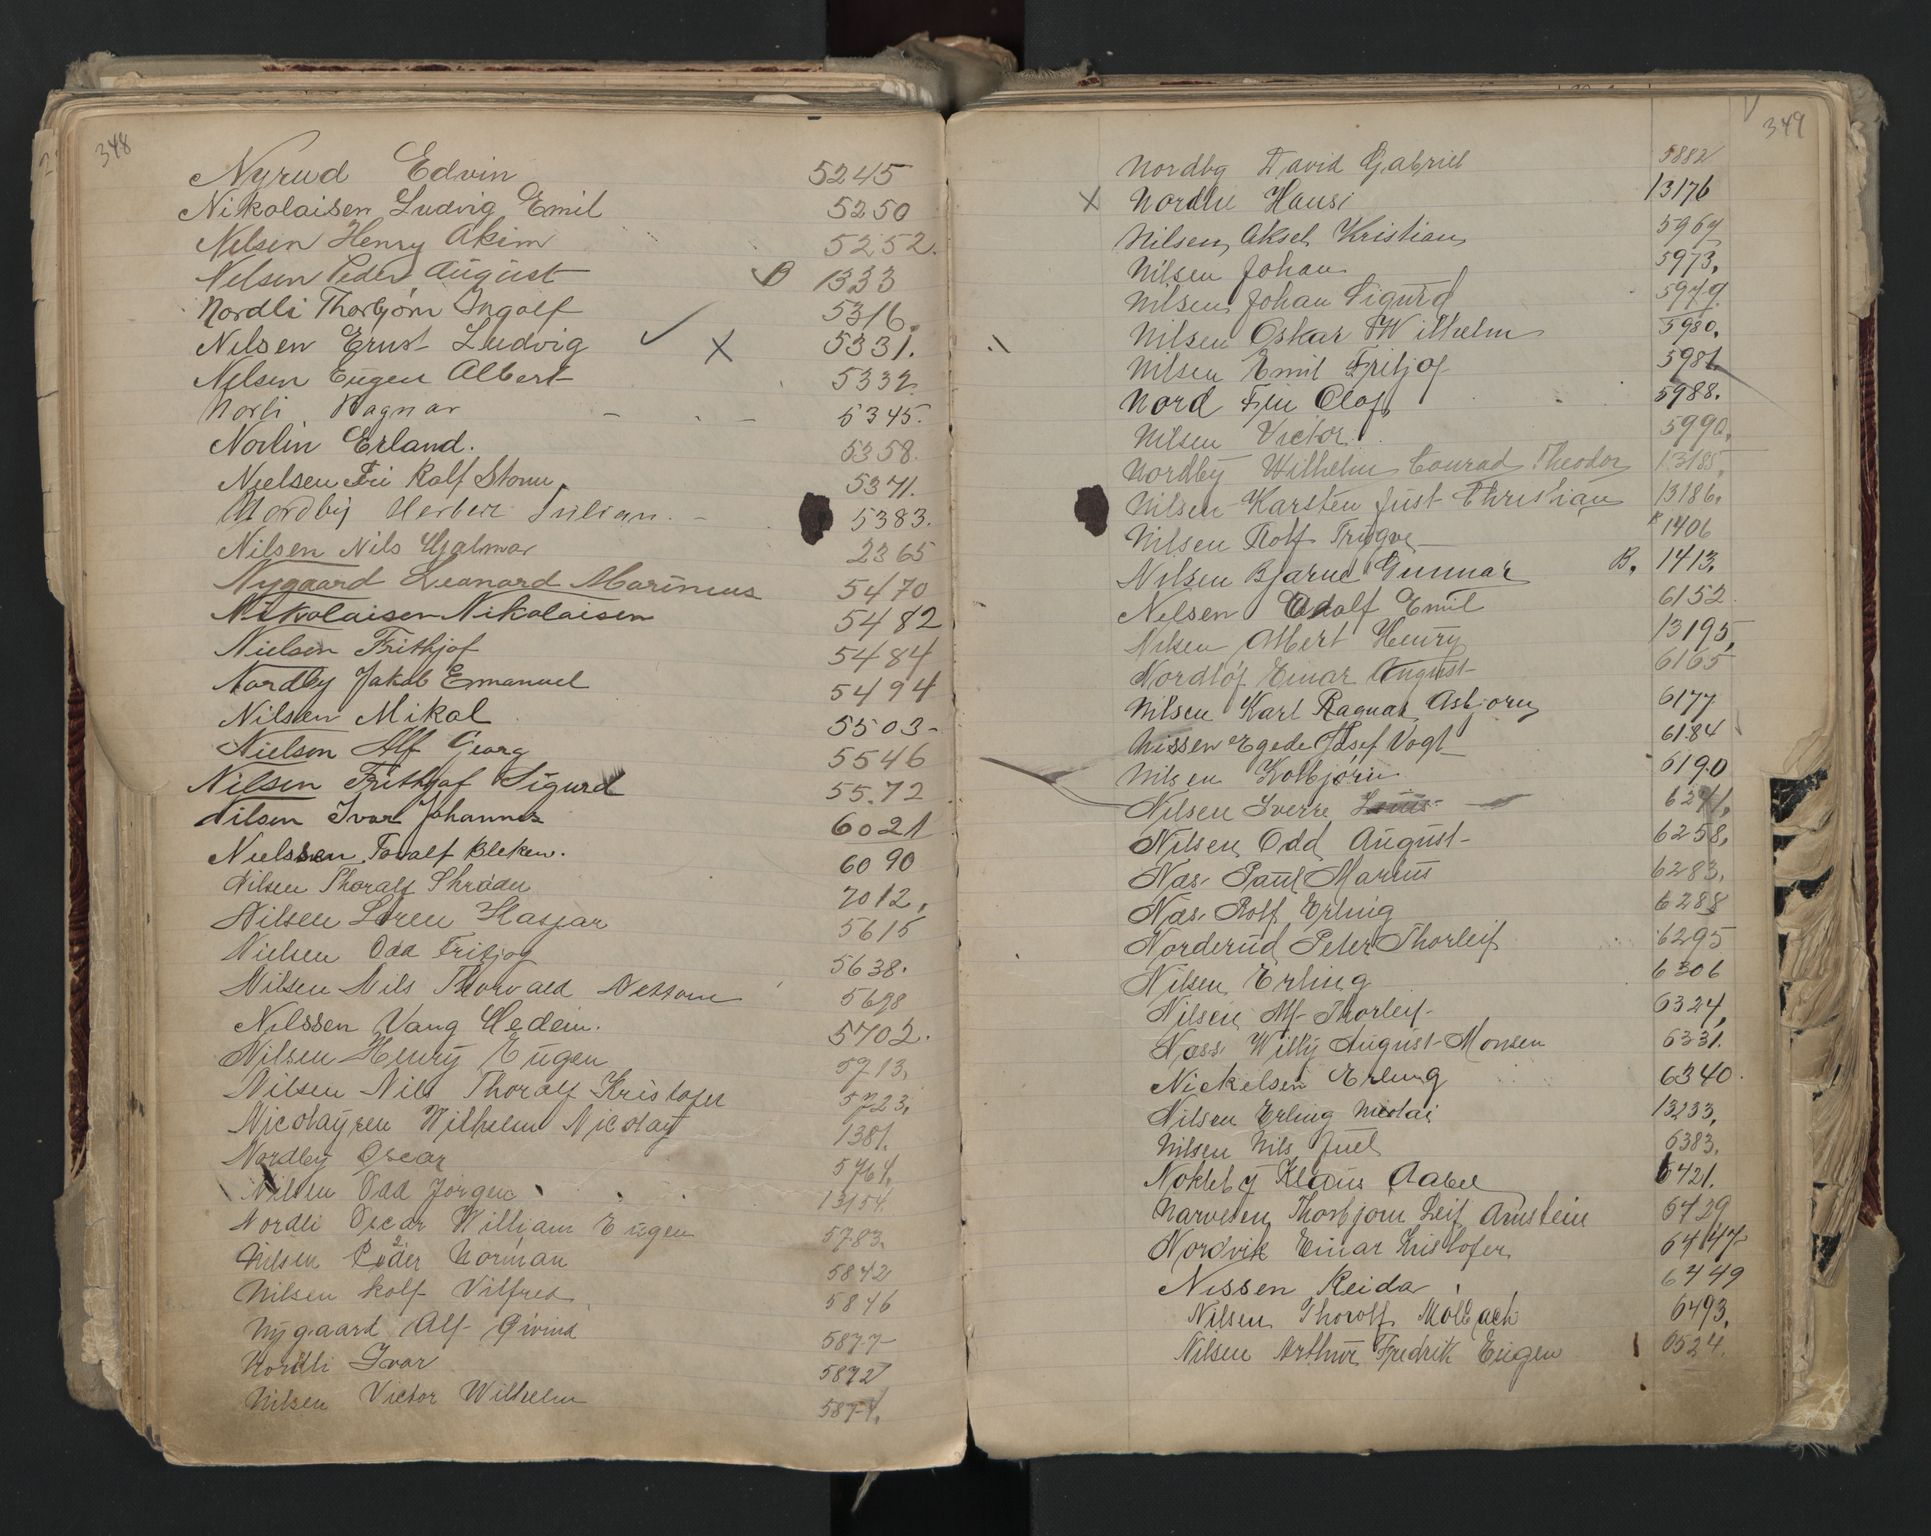 348
Nyrud Edvin 5245
Nikolaisen Ludvig Emil 5250
Nilsen Henry Akim 5252.
Nilsen Peder August B 1333
Nordli Thorbjörn Ingolf 5316.
Nilsen Ernst Ludvig ✓ X 5331.
Nilsen Eugen Albert 5332
Norli Ragnar 5345.
Norlin Erland. 5358.
Nielsen Fri Rolf Storm 5371.
Nordby Herber Julian. 5383.
Nilsen Nils Hjalmar 2365
Nygaard Leonard Marinius 5470
Nikolaisen Nikolaisen 5482
Nielsen Frithjof 5484
Nordby Jakob Emanuel 5494
Nilsen Mikal 5503-
Nielsen Alf Georg 5546
Nilsen Frithjof Sigurd 55.72
Nilsen Ivar Johannes 6021
Nielssen Toralf Bleken. 6090
Nilsen Thoralf Shrøder 7012.
Nilsen Søren Kaspar 5615
Nielsen Odd Fritjof 5638.
Nilsen Nils Thorvald 5698
Nilssen Vang Hedein. 5702.
Nilsen Henry Eugen 5713,
Nilsen Nils Thoralf Kristofer 5723,
Nicolaysen Wilhelm Nicolay 1381.
Nordby Oscar 5761,
Nilsen Odd Jörgen 13154.
Nordli Oscar William Eugen 5783.
Nilsen Peder Norman 5842
Nilsen Rolf Vilfred 5846
Nygaard Alf Øivind 5877
Nordli Ivar 5872
Nilsen Victor Wilhelm 5871.
349
Nordby David Gabriel 5882
X Nordlie Hansi 13176
Nilsen, Aksel Kristian 5969
Nilsen Johan 5973.
Nilsen Johan Sigurd 5979
Nilsen Oskar Wilhelm 5980.
Nilsen Emil Fritjof 5981.
Nord Fin Olof 5988.
Nilsen Victor. 5990.
Nordby Wilhelm Conrad Theodor 13185,
Nilsen Karsten Just Christian 13186.
Nilsen Rolf Trügve 1406
Nilsen Bjarne Gunnar B. 1413.
Nilsen Adolf Emil 6152
Nilsen Albert Henry 13195,
Nordløf Einar August 6165
Nilsen Karl Ragnar Asbjörn 6177
Nissen Egede Josef Vogt 6184
Nilsen Kolbjörn 6190
Nilsen Sverre 6241.
Nilsen Odd August 6258.
Næs Paul Marius 6283.
Næs Rolf Erling 6288
Norderud Peter Thorleif 6295
Nilsen Erling 6306
Nilsen Alf Thorleif 6324,
Næss Willy August Monsen 6331.
Nickelsen Erling 6340.
Nilsen Erling Nicolai 13233,
Nilsen Nils Juel 6383.
Nokleby Klaus Aabel 6421.
Narvesen Thorbjorn Leif Arnstein 6429
Nordvik Einar Kristofer 6447
Nissen Reidar 6449
Nilsen Thorolf Molbach 6493,
Nilsen Arthur Fredrik Eugen 6524.